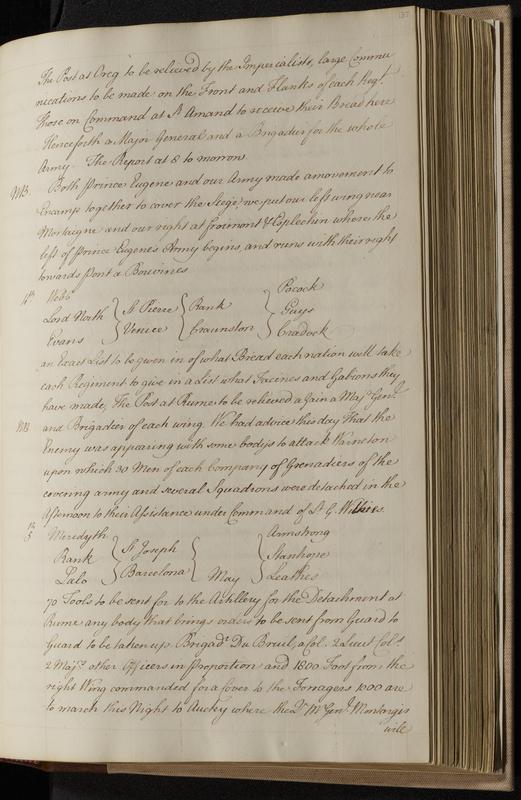 137
The Post at Orcq to be relieved by the Imperialists, large Commu
nications to be made on the Front and Flanks of each Regt.
those on Command at St Amand to receive their Bread here
Henceforth a Major General and a Brigadier for the whole
Army. The Report at 8 to morrow.
NB. Both Prince Eugene and our Army made a movement to
Encamp together to cover the Siege, we put our left wing near
Mortaigne and our right at froimont & Esplechin where the
left of Prince Eugene's Army begins, and runs with their right
towards Pont a Bouvines
4th Webb
Lord North } St Pierre { Rank } Pocock
Evans } Venice { Craunston } Guys
Cradock
an Exact List to be given in of what Bread each nation will take
each Regiment to give in a List what Facines and Gabions they
have made, The Post at Rume to be relieved again a Majr Genl
NB and Brigadier of each wing. We had advice this day that the
Enemy was appearing with some bodys to attack Warneton
upon which 30 Men of each Company of Grenadiers of the
covering army and several Squadrons were detached in the
Afternoon to their Assistance under Command of Lt. G. Wilkes.
5th Meredyth
Rank } St Joseph { May } Armstrong
Lalo } Barcelona { Stanhope
Leathes
70 Tools to be sent for to the Artillery for the Detachment at
Rume any body that brings orders to be sent from Guard to
Guard to be taken up. Brigadr Du Bruil, a Col. 2 Lieut Cols
2 Majrs other Officers in proportion and 1800 Foot from the
right Wing commanded for a Cover to the Forragers 1000 are
to march this Night to Aucky where the Dt. M. Genl. Montargis
will